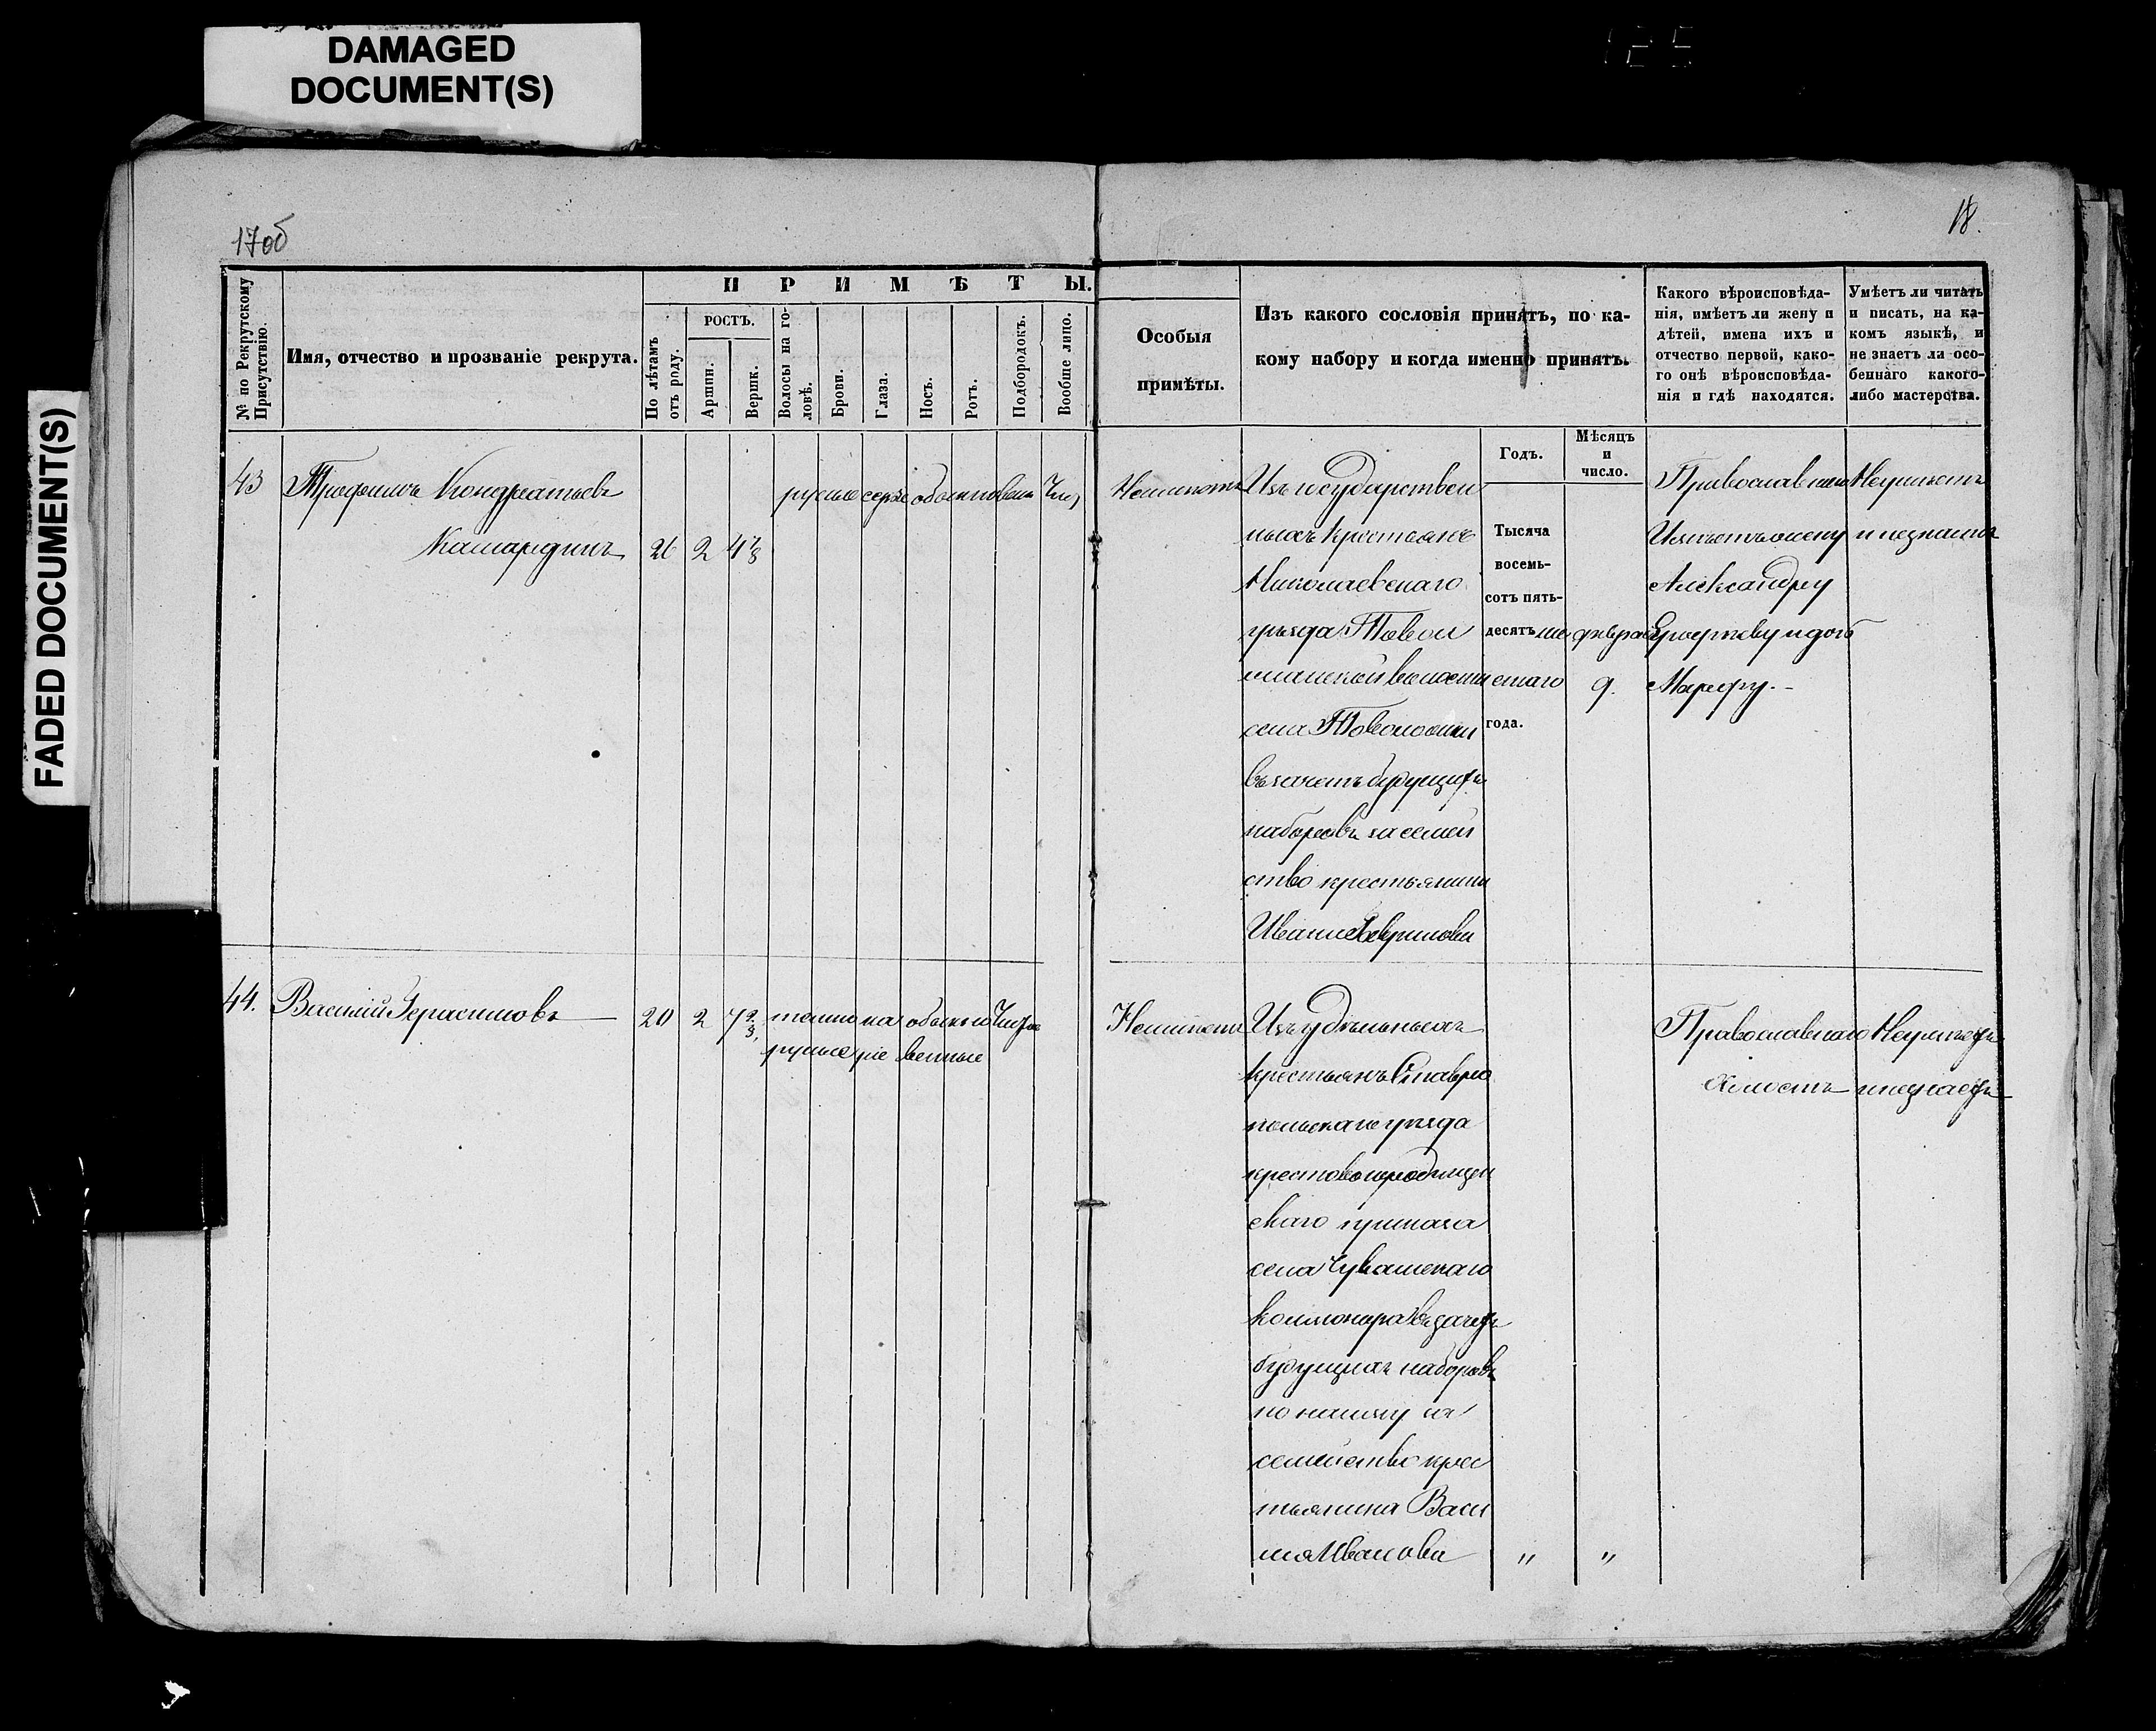 DAMAGED
DOCUMENT(S)
FADED DOCUMENT(S)
125
17об
18.
№ по Рекрутскому Присутствію.
Имя, отчество и прозваніе рекрута.
ПРИМѢТЫ.
По лѣтамъ отъ роду.
РОСТЪ.
Аршин.
Вершк.
Волосы на головѣ.
Брови.
Глаза.
Носъ.
Ротъ.
Подбородокъ.
Вообще лицо.
Особыя
примѣты.
Изъ какого сословія принятъ, по ка-
кому набору и когда именно принятъ.
Годъ.
Мѣсяцъ
и
число.
Какого вѣроисповѣда-
нія, имѣетъ ли жену и
дѣтей, имена ихъ и
отчество первой, како-
го онѣ вѣроисповѣда-
нія и гдѣ находятся.
Умѣетъ ли читать
и писать, на ка-
комъ языкѣ, и
не знаетъ ли осо-
беннаго какого-
либо мастерства.
43
Трофимъ Кондратьевъ
Камардинъ
26 2 4
русые серые обыкновен чис
Неимѣетъ
Изъ государствен
ныхъ крестьянъ
Николаевскаго
уѣзда Товол
жанской волости
села Товоложки
въ зачетъ будущихъ
наборовъ за семей
ство крестьянина
Ивана
Тысяча
восемь-
сотъ пять-
десятъ ше
стаго
года.
февраля
9.
Православнаго
Имѣетъ жену
Александру
Ерофѣеву и дочь
Марфу.-
Неумѣетъ
и незнаетъ
44.
Василий Герасимовъ
20 2 7 2/3
темно ка обыкно чистое
русые ріе венные
Неимѣетъ
Изъ удѣльныхъ
крестьянъ Ставро
польскаго уѣзда
крестовогородищен
скаго приказа
села Чувашскаго
въ зачетъ
будущихъ наборовъ
по найму за
семейство крес
тьянина Васи
лія Иванова
" "
Православнаго
Холостъ
Неумѣетъ
и незнаетъ